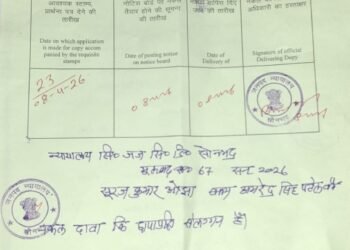 आवश्यक स्टाम्प
प्रार्थना पत्र देने की
तारीख
नोटिस बोर्ड पर नकल
तैयार होने की सूचना
की तारीख
नकल वापिस दिए
जाने की तारीख
अधिकारी का हस्ताक्षर
Date on which application
is made for copy accom
panied by the requisite
stamps
Date of posting notice
on notice board
Date of Delivery
Signature of official
Delivering Copy
23
08-4-26
जनपद न्यायालय
सोनभद्र
न्यायालय सि० जज सि० डि० सोनभद्र
67 सन् 2026
सूरज कुमार ओझा बनाम सिंह
जनपद न्यायालय
नकल दावा कि छायाप्रति संलग्न है।